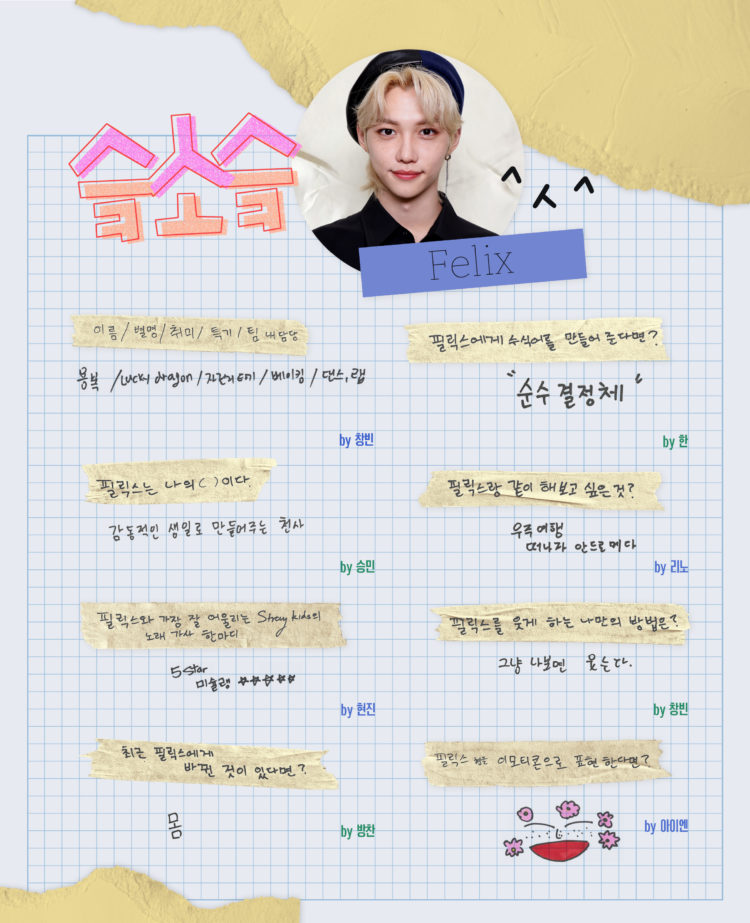 슼소슼
^ㅅ^
Felix
이름/별명/취미/특기/팀 내 담당
용복 /Lucky dragon / /베이킹/댄스,랩
by 창빈
필릭스에게 수식어를 만들어 준다면?
"순수 결정체"
by 한
필릭스는 나의( )이다.
감동적인 생일로 만들어주는 천사
by 승민
필릭스랑 같이 해보고 싶은 것?
우주여행
떠나자 안드로메다
by 리노
필릭스와 가장 잘 어울리는 Stray kids의
노래 가사 한마디
5 Star
미슐랭 ☆☆☆☆☆
by 현진
필릭스를 웃게 하는 나만의 방법은?
그냥 나보면 웃는다.
by 창빈
최근 필릭스에게
바뀐 것이 있다면?
몸
by 방찬
필릭스 형을 이모티콘으로 표현한다면?
by 아이엔